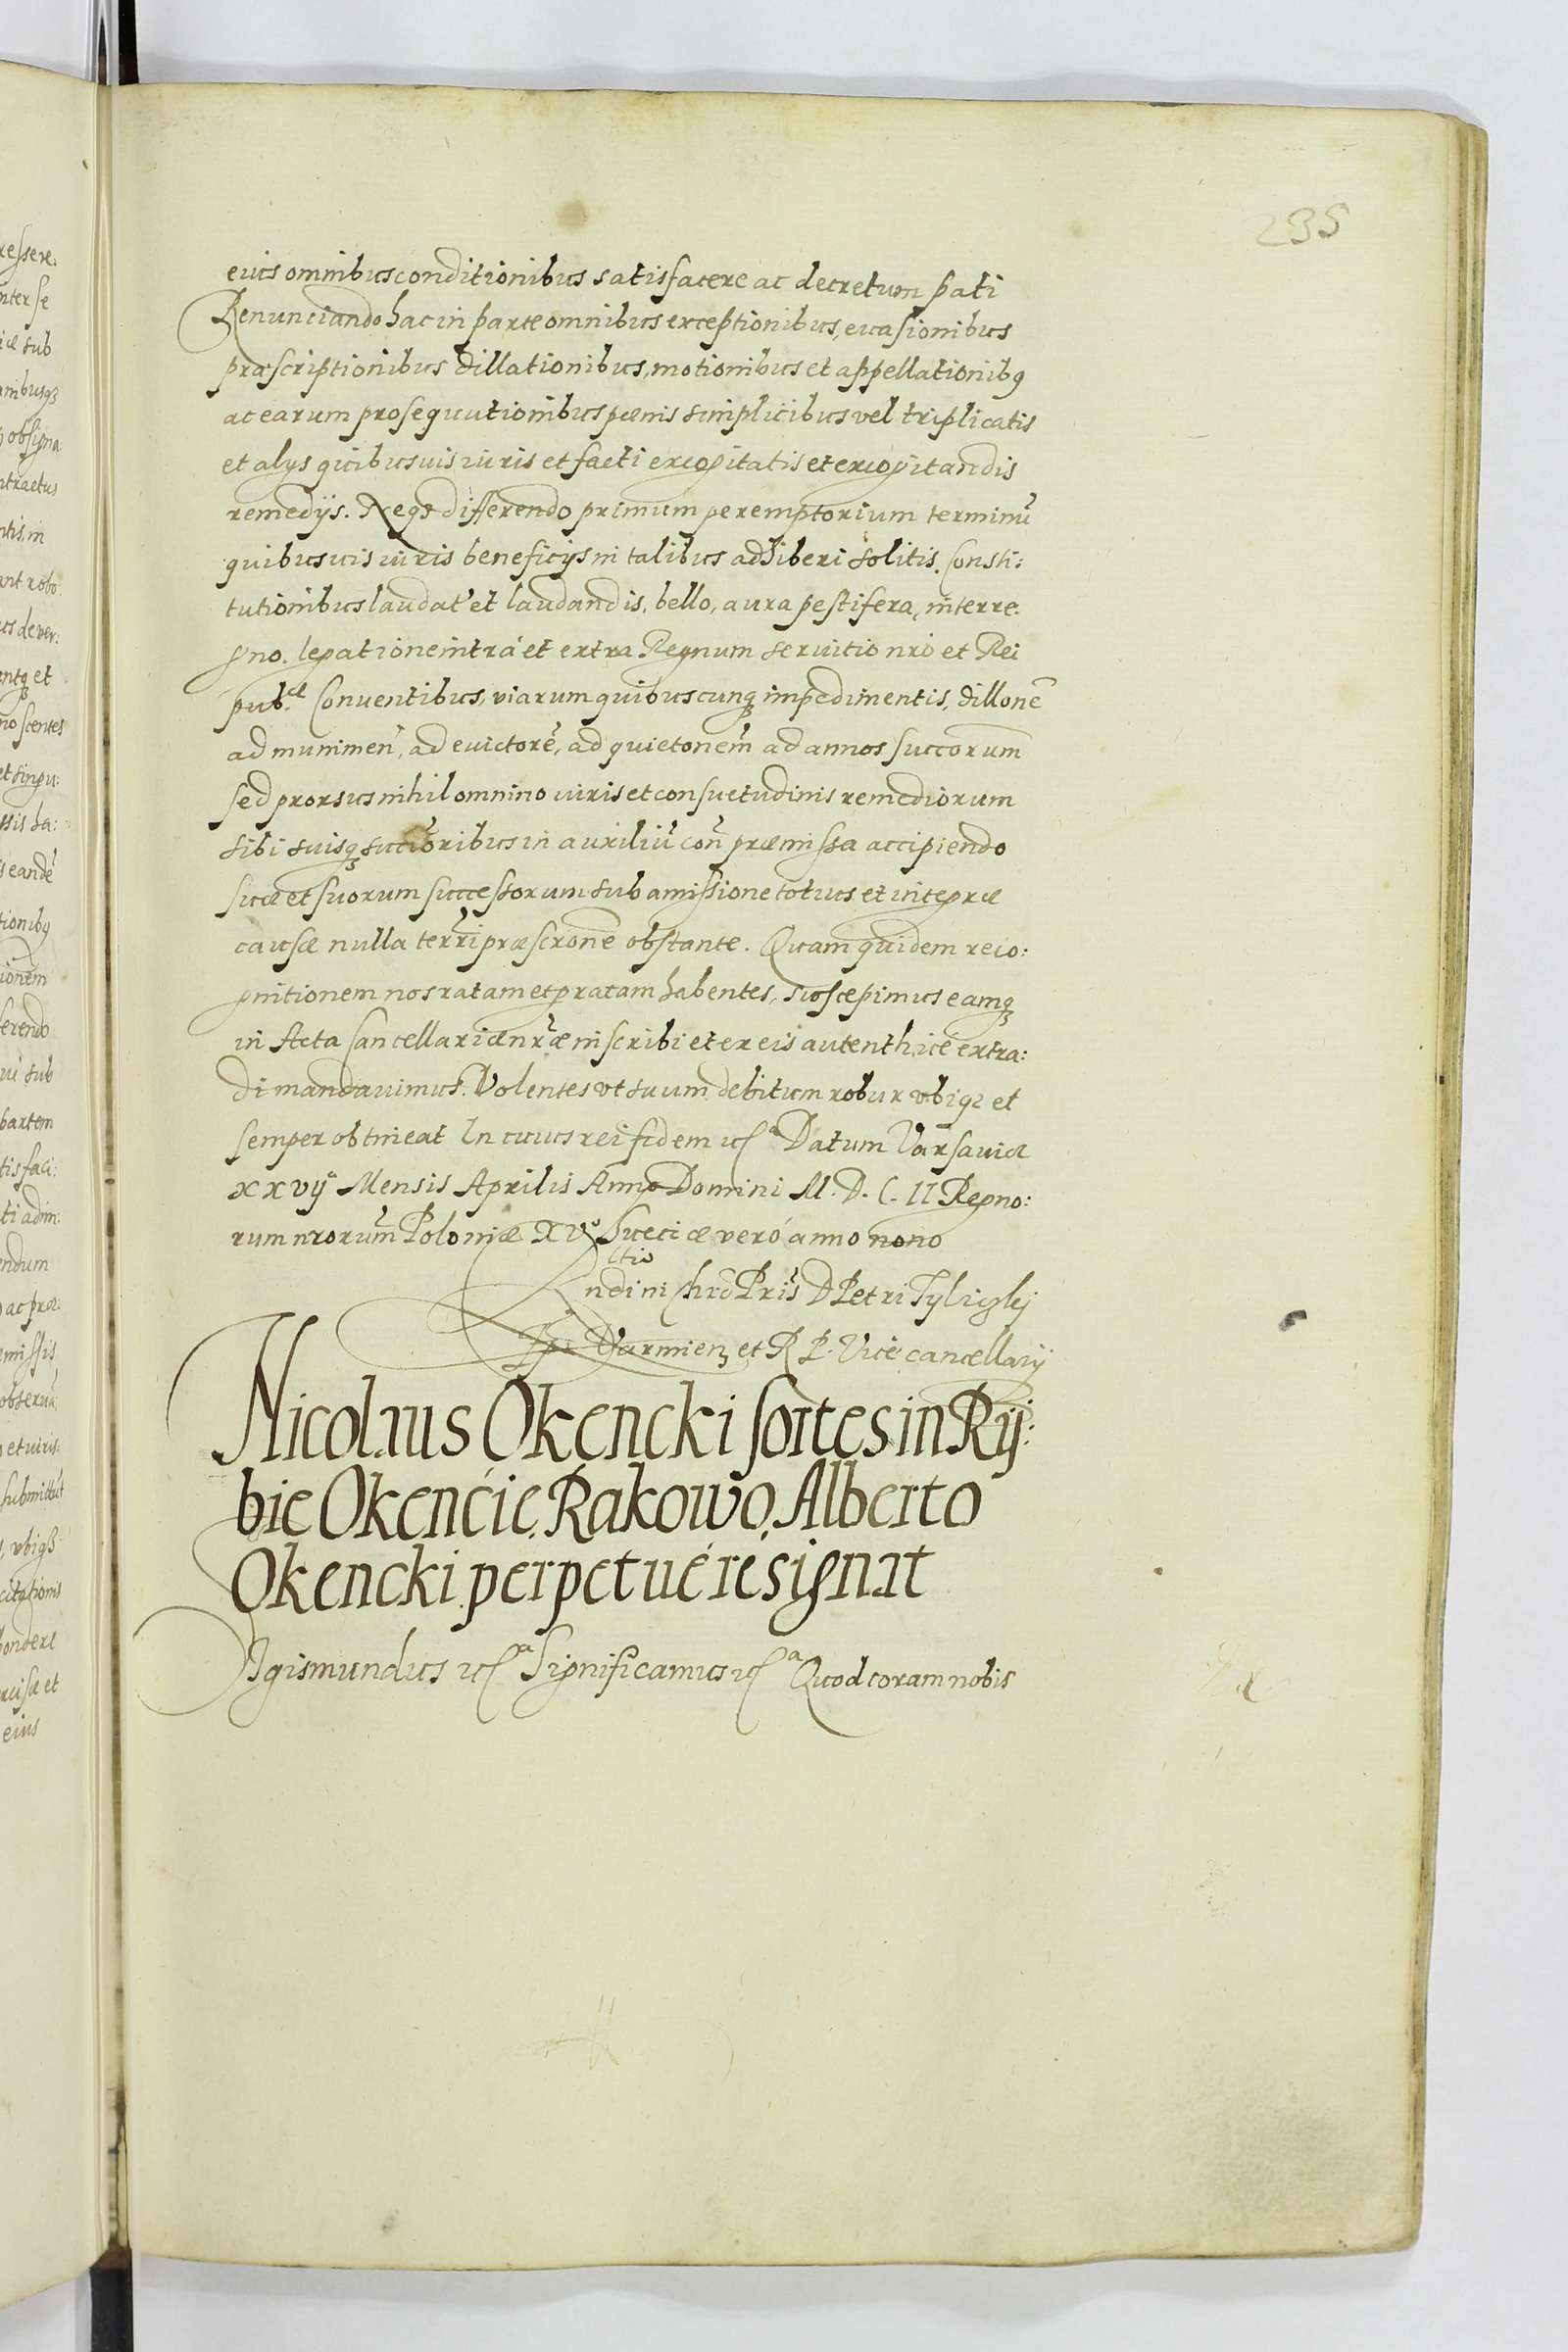 235
eius omnibus conditionibus satisfacere ac decretum pati
Renunciando hac in parte omnibus exceptionibus, euasionibus
præscriptionibus dillationibus, motionibus et appellationibꝯ
ac earum prosequutionibus pœnis simplicibus vel triplicatis
et alys quibusuis iuris et facti excogitatis et excogitandis
remedijs. Neqꝫ differendo primum peremptorium terminũ
quibusuis iuris beneficijs in talibus adhiberi solitis. Consti:
tutionibus laudat' et laudandis, bello, aura pestifera, interre:
gno. legatione intrà et extra Regnum seruitio nrõ et Rei
pub.cæ Conuentibus, viarum quibuscunqꝫ impedimentis, dillonẽ
ad munimeñ, ad euictorẽ, ad quietonem̃ ad annos succorum
sed prorsus nihil omnino iuris et consuetudinis remediorum
sibi suisqꝫ succõribus in auxiliũ coñ præmissa accipiendo
suæ et suorum successorum sub amissione totius et integræ
causæ nulla terrĩ præscronẽ obstante. Quam quidem reco:
gnitionem nos ratam et gratam habentes, suscepimus eamqꝫ
in Acta Cancellariæ nrãe inscribi et ex eis autenthice extra:
di mandauimus. Volentes vt suum debitum robur vbiqꝫ et
semper obtineat In cuius rei fidem etcᵃ Datum Varsauiæ
XXVIJᵃ Mensis Aprilis Anno Domini M. D. C. II Regno:
rum nrorũm Poloniæ XVᵒ Sueciæ verò anno nono
ctio
ndini Chrõ Prĩs D Petri Tyliczkj
Epĩ Varmienꝫ et R P. Vicecancellarij
Nicolaus Okencki sortes in Rij:
bie Okencie, Rakowo, Alberto
Okencki perpetuè resignat
Sigismundus etcᵃ Significamus etcᵃ Quod coram nobis